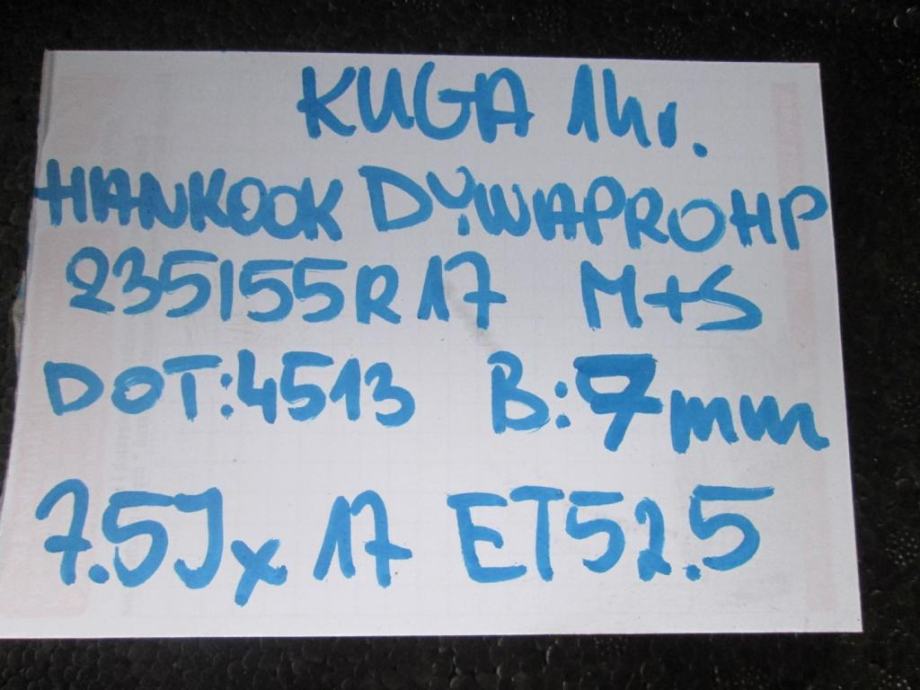 KUGA 14r.
HANKOOK DYWAPROHP
235/55R17 M+S
DOT:4513 B:7mm
7.5Jx17 ET52.5